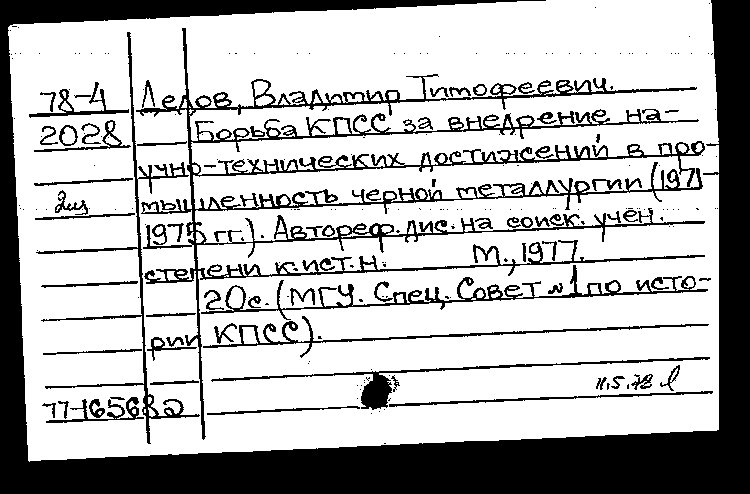 78-4 Дедов, Владимир Тимофеевич.
2028 Борьба КПСС за внедрение на-
учно-технических достижений в про-
2 мышленность черной металлургии (1971-
1975 гг.). Автореф. дис. на соиск. учен.
степени к.ист.н. М., 1977.
20с. (МГУ. Спец. Совет №1 по исто-
рии КПСС).
11.5.78
77-16568